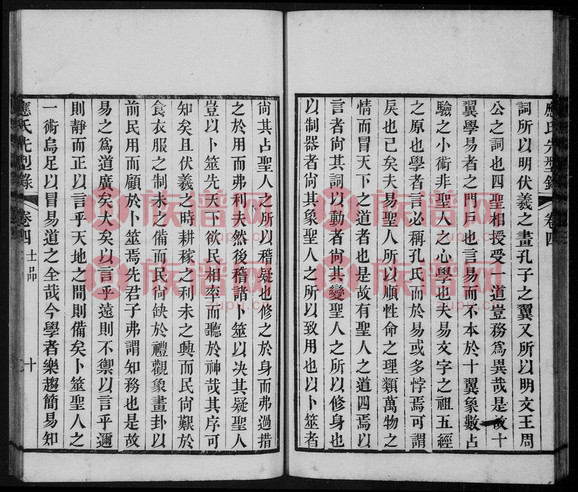 應氏先型錄 卷四
詞所以明伏羲之畫孔子之翼又所以明文王周
公之詞也四聖相授受一道豈務為異哉是故十
翼學易者之門戶也言易而不本於十翼象數占
驗之小術非聖人之心學也夫易文字之祖五經
之原也學者言必稱孔氏而於易或多悖焉可謂
戾也已矣夫易聖人所以順性命之理類萬物之
情而冒天下之道者也是故有聖人之道四焉以
言者尚其詞以動者尚其變聖人之所以修身也
以制器者尚其象聖人之所以致用也以卜筮者
尚其占聖人之所以稽疑也修之於身而弗過措
之於用而弗利夫然後稽諸卜筮以决其疑聖人
豈以卜筮先天下欲民相率而聽於神哉其序可
知矣且伏羲之時耕稼之利未之興而民尚艱於
食衣服之制未之備而民尚缺於禮觀象畫卦以
前民用而顧於卜筮焉先君子弗謂知務也是故
易之為道廣矣大矣以言乎遠則不禦以言乎邇
則靜而正以言乎天地之間則備矣卜筮聖人之
一術烏足以冒易道之全哉今學者樂趨簡易知
應氏先型錄 卷四 士品 十
族谱网
zupu.cn